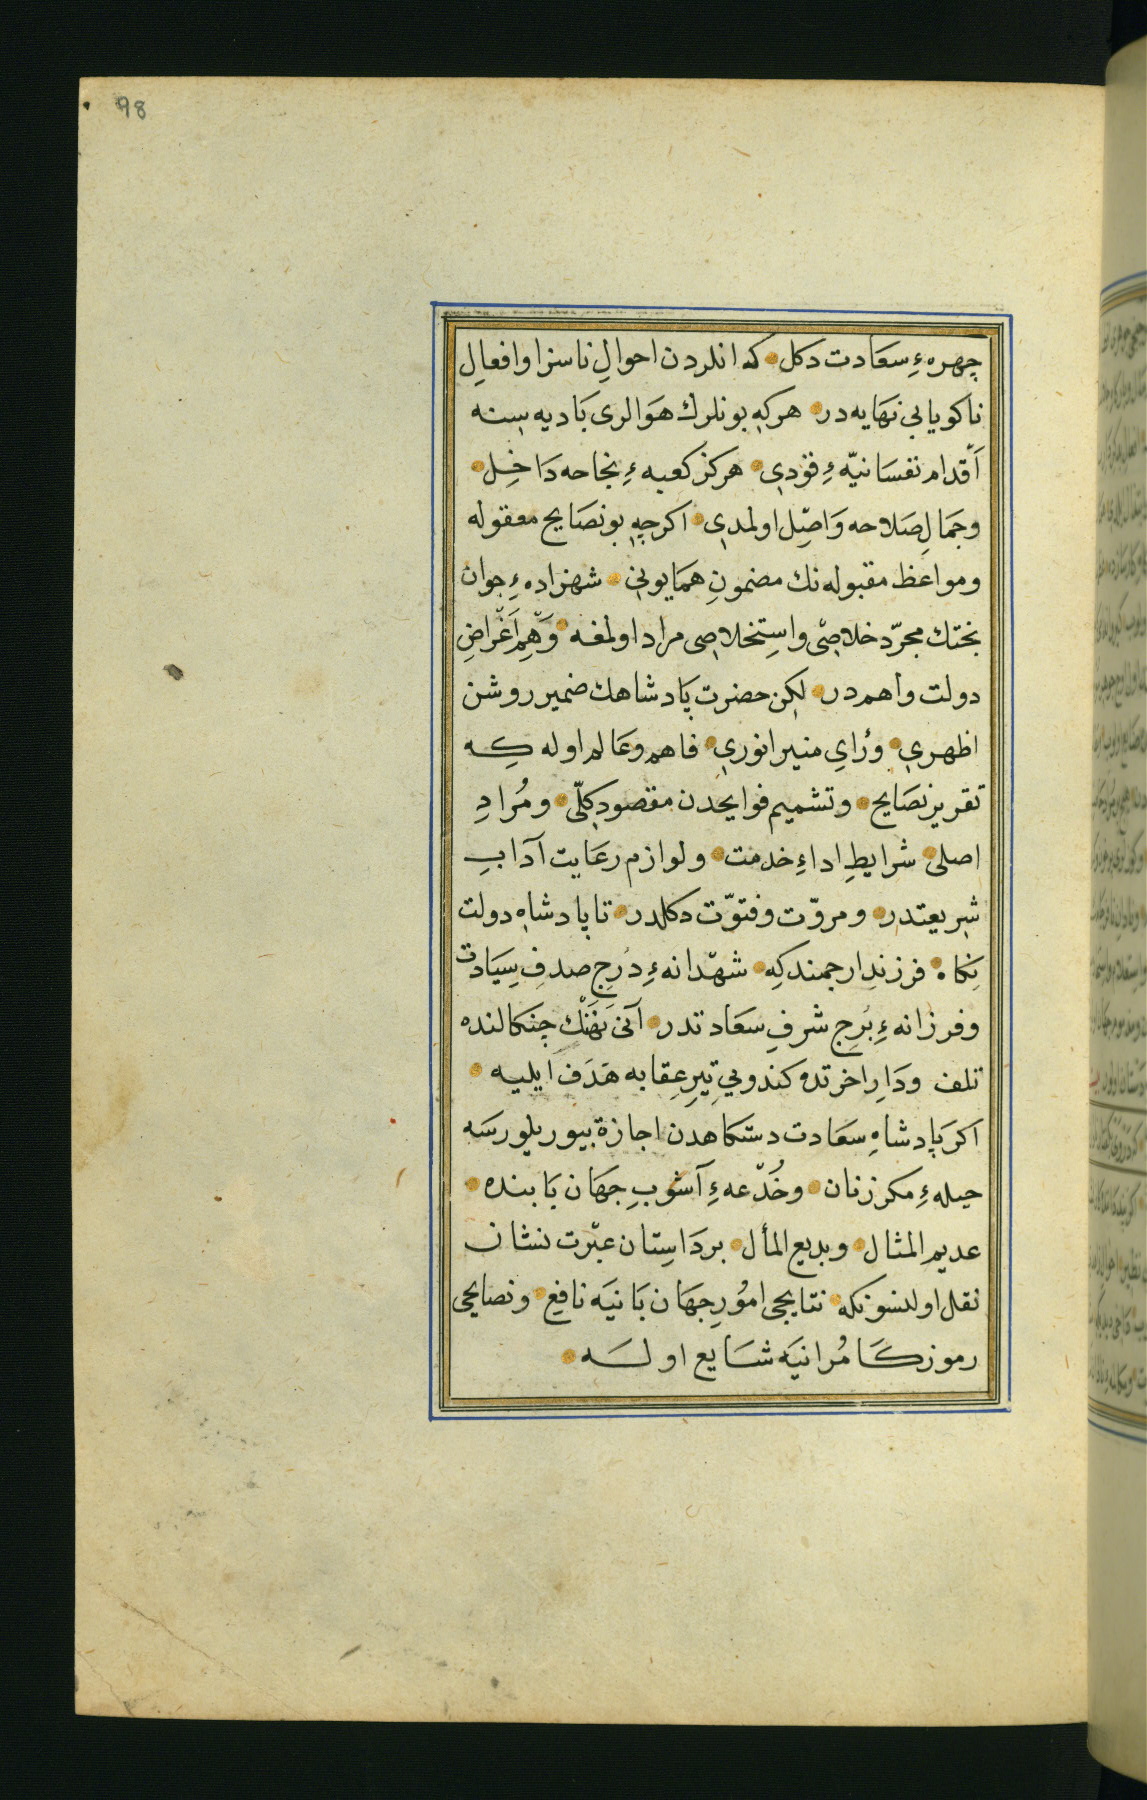 98
چهرهءِ سعَادت دكل كه انلردن احوالِ ناسزا وافعالِ
ناكويا بى نهَايه در هركهِ بونلرك هَوالرى بَاديه سِنه
اَقدام نفسَانيّهءِ قودىِ هركز كعبهءِ نجاحه دَاخِل
وجَمالِ صَلاحه وَاصِل اولمدىِ اكرچهِ بونصَايح معقوله
ومواعظ مقبوله نك مضمونِ همَايونىِ شهزادهءِ جوان
بختك مجرّد خلاصْى واستِخلاصِى مراد اولمغه وَهْمِ اَغْراضِ
دولت واهم در لكِن حضرت پَادشاهك ضمير روشن
اظهرىِ ورُاىِ منير انورىِ فاهم وعَالم اوله كِه
تقرير نصَايح وتشميم فوايحدن مقصودِ كلّى ومُرادِ
اصلى شرايطِ اداءِ خدمت ولوازم رعَايت آدابِ
شرِيعتدر ومروّت وفتوّت دكلدر تا پادشاهِ دولت
پناه فرزندِ ارجمند كهِ شهدانهءِ دُرجِ صدفِ سِيَادت
وفرزانهءِ بُرجِ شرفِ سعَادتدر آنى نَهَنْك چنكالنده
تلف ودَارِ اخرتده كندوىِ تِيرِ عِقابه هَدَف ايليه
اكر پَادشاهِ سعَادت دستكاهدن اجازة بيوريلورسَه
حيلهءِ مكر زنان وخُدْعهءِ آشوبِ جهَان يَا بنده
عديم المثال وبديع المأل بر دَاسِتان عبْرت نشان
نقل اولنسونكه نتايجى امُورِ جهَان بَانيَه نافِع ونصايحى
رموز كَامُرانيَه شَايع اولسَه